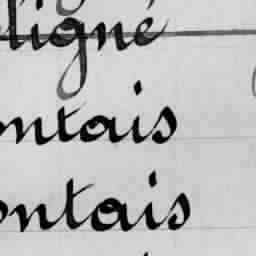 ligné
ontais
ontais